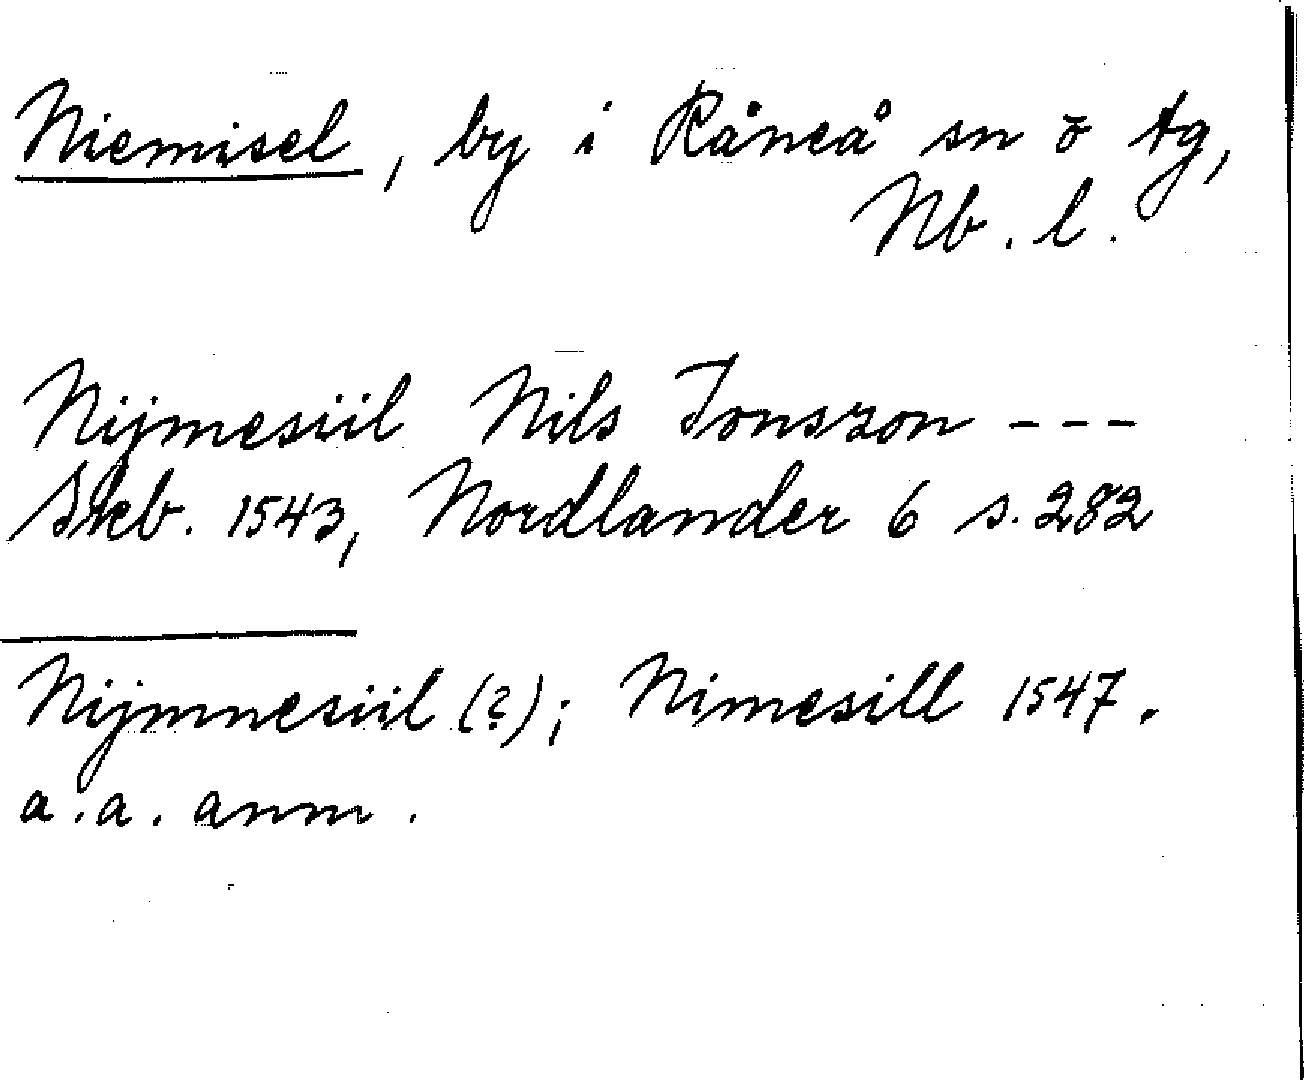 Niemisel, by i Råneå sn o tg,
Nb. l.
Nijmesiil Nils Jonszon ---
Skb. 1543, Nordlander 6 s. 282
Nijmnesiil (?); Nimesill 1547.
a.a. anm.